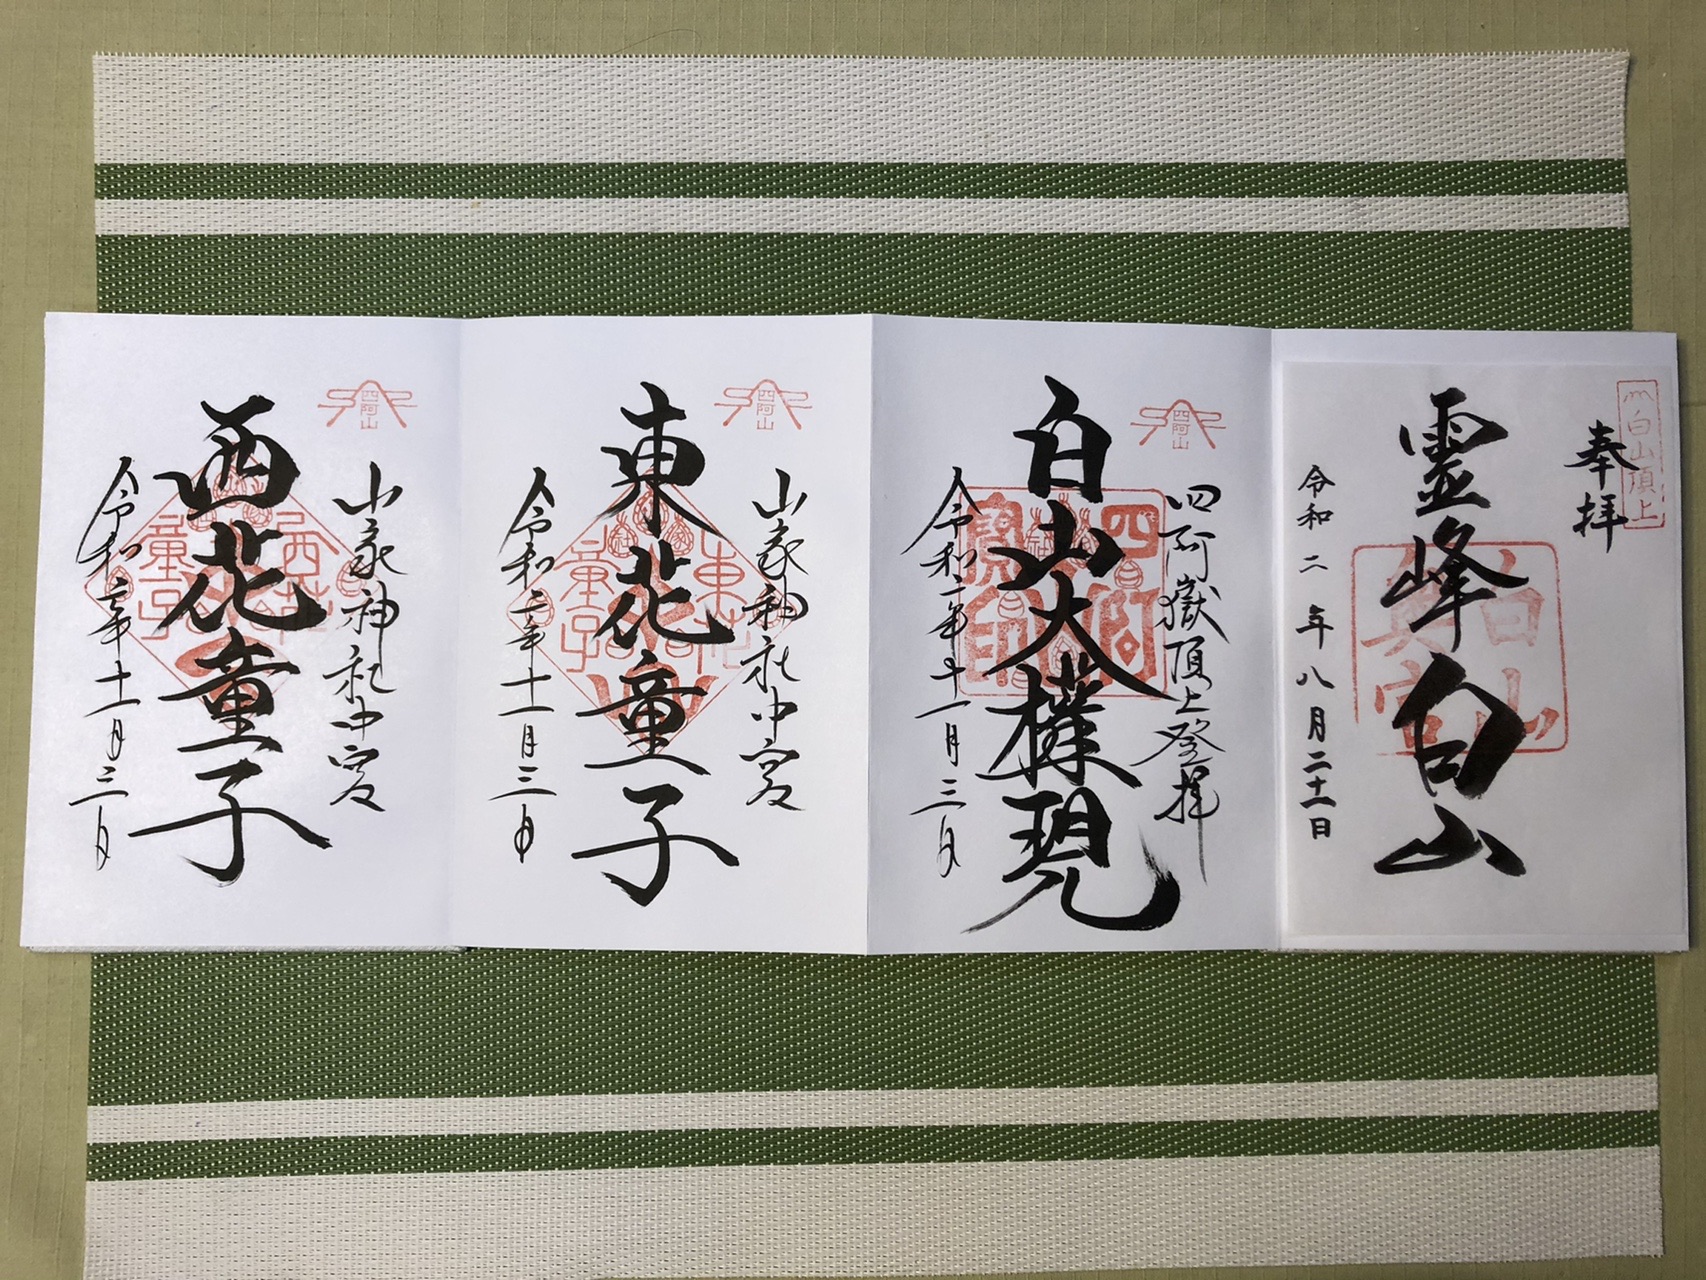 白山頂上
奉拝
霊峰白山
白山
奥宮
令和二年八月二十一日
四阿山
四阿嶽頂上登拝
白山大権現
四阿
令和二年十一月三日
四阿山
山家神社中宮
東花童子
東花
童子
令和二年十一月三日
四阿山
山家神社中宮
西花童子
西花
童子
令和二年十一月三日